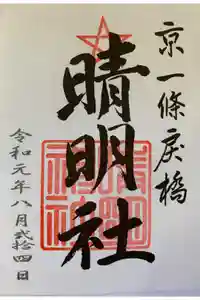 京一條戻橋
晴明社
令和元年八月弐拾四日